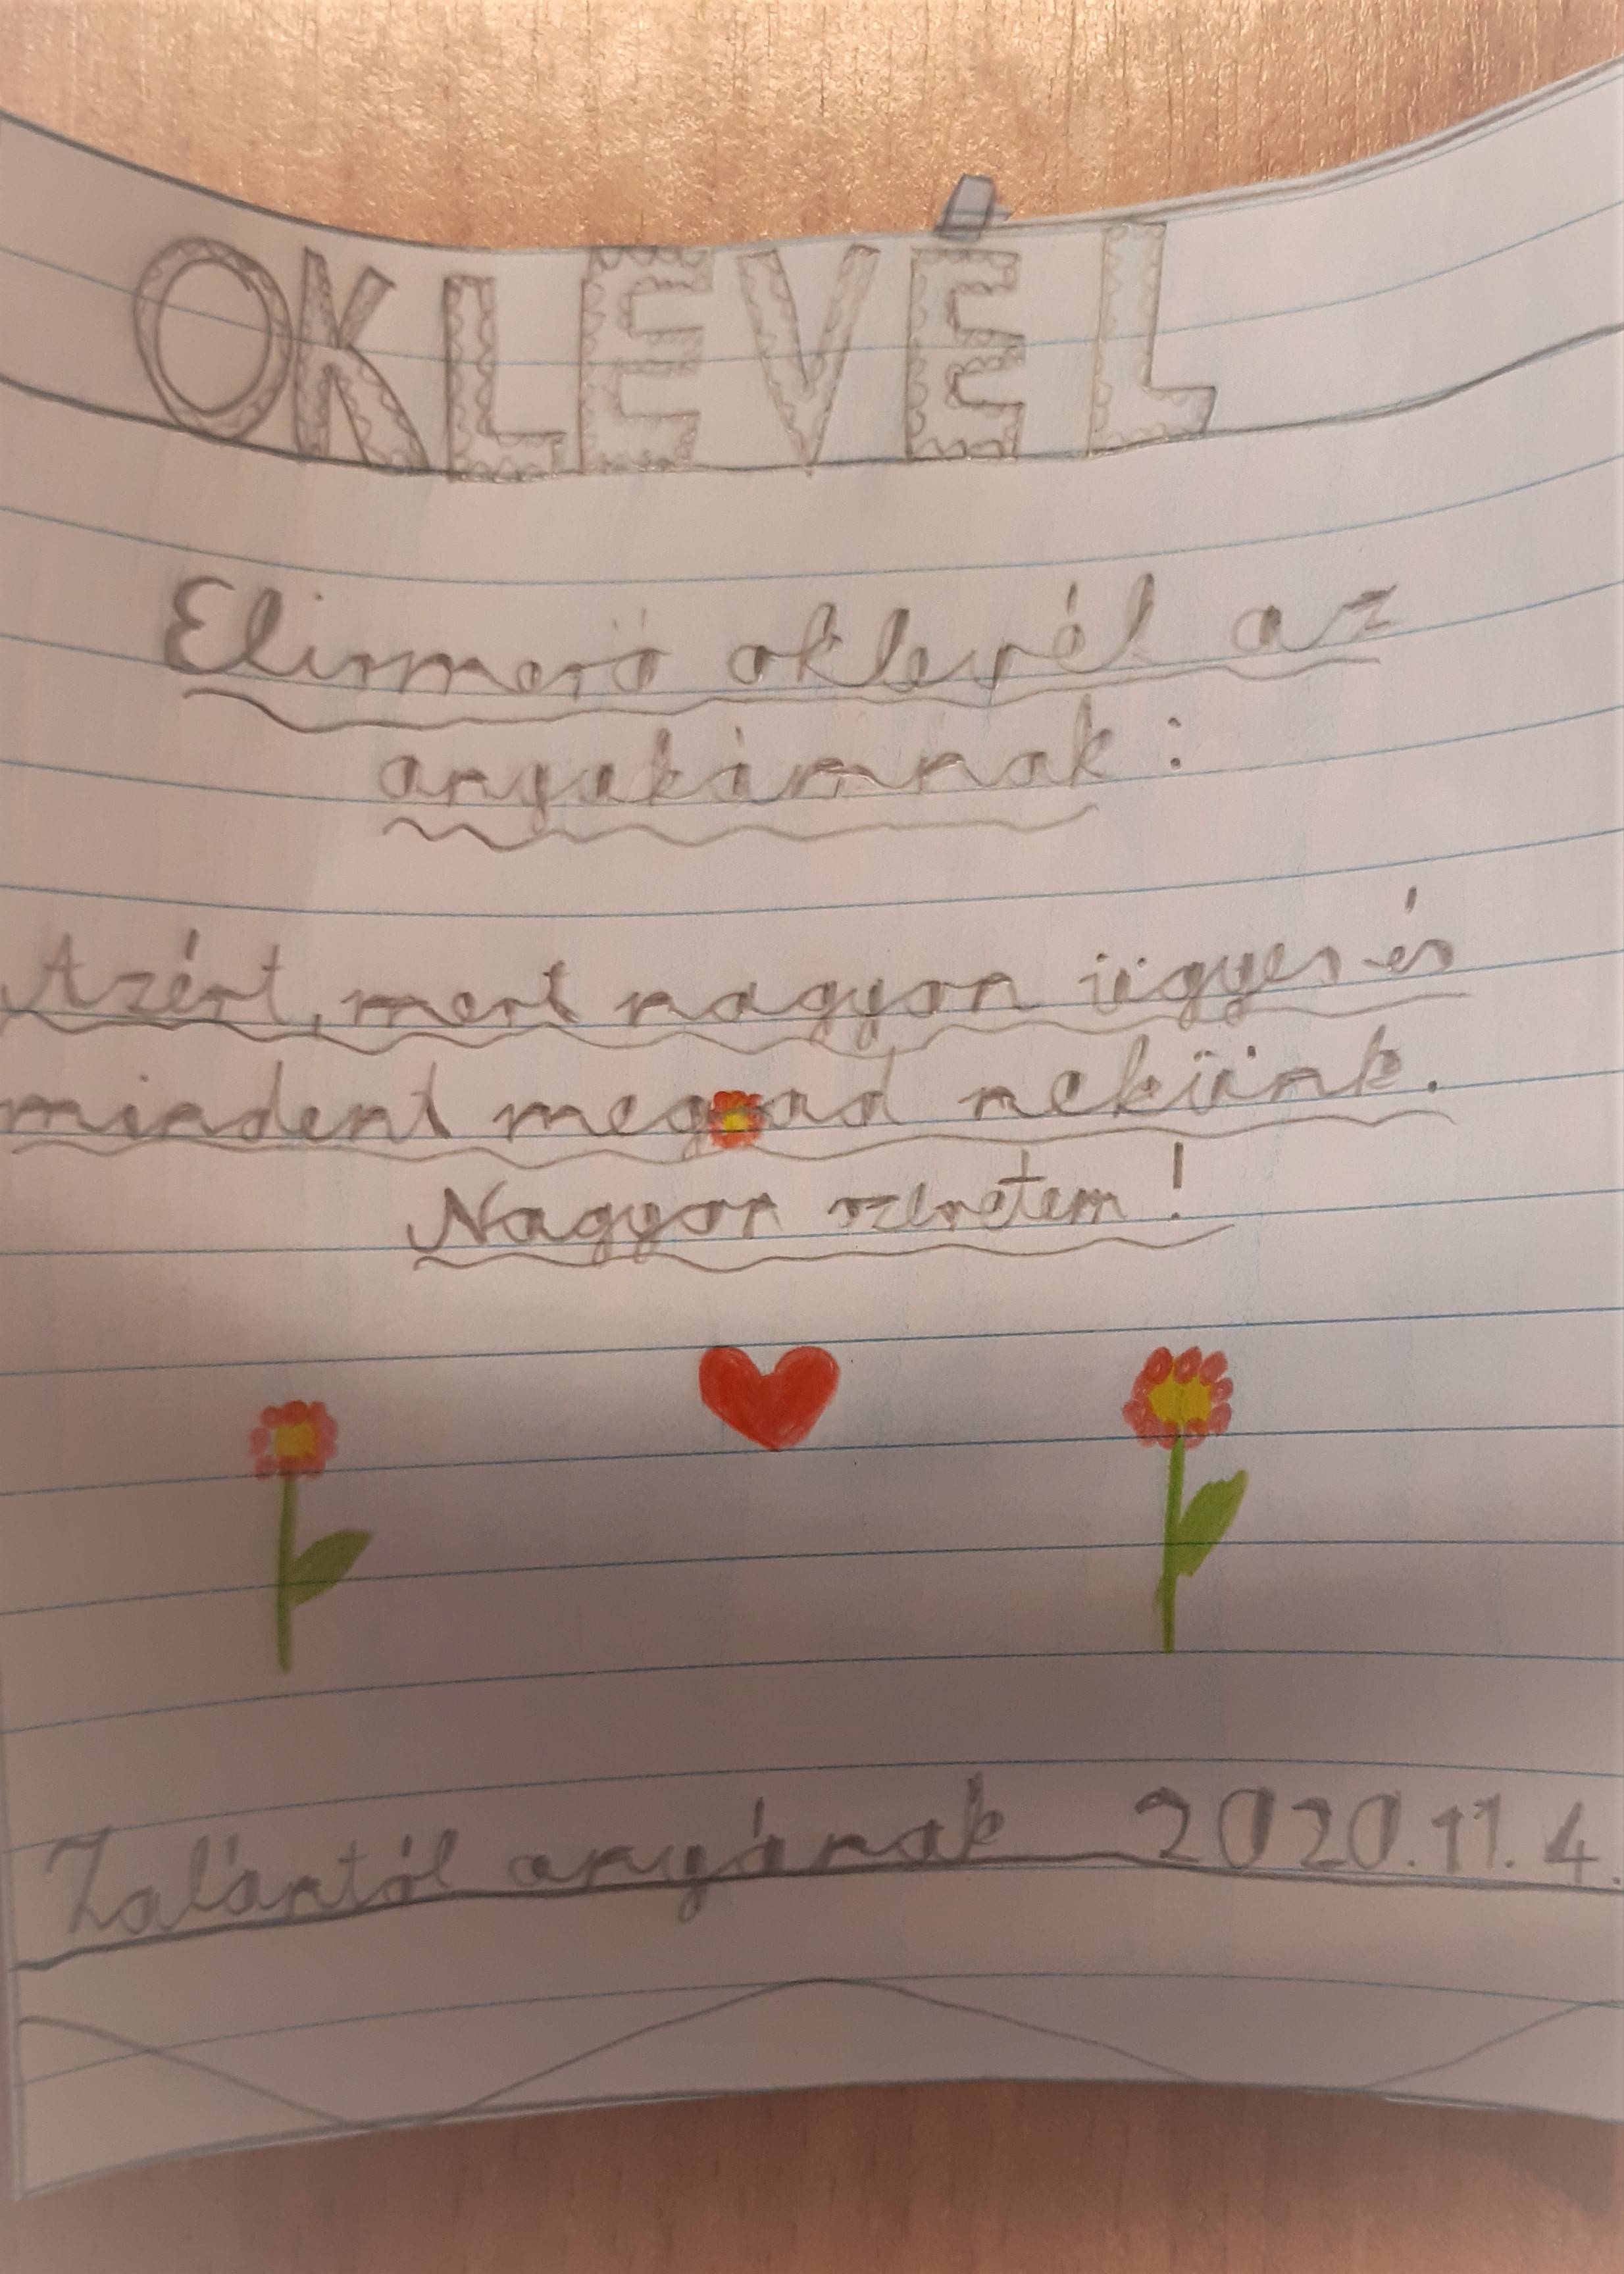 OKLEVÉL
Elismerő oklevél az
anyukámnak :
Azért, mert nagyon ügyes és
mindent megad nekünk.
Nagyon szeretem !
Zalántól anyának 2020.11.4.